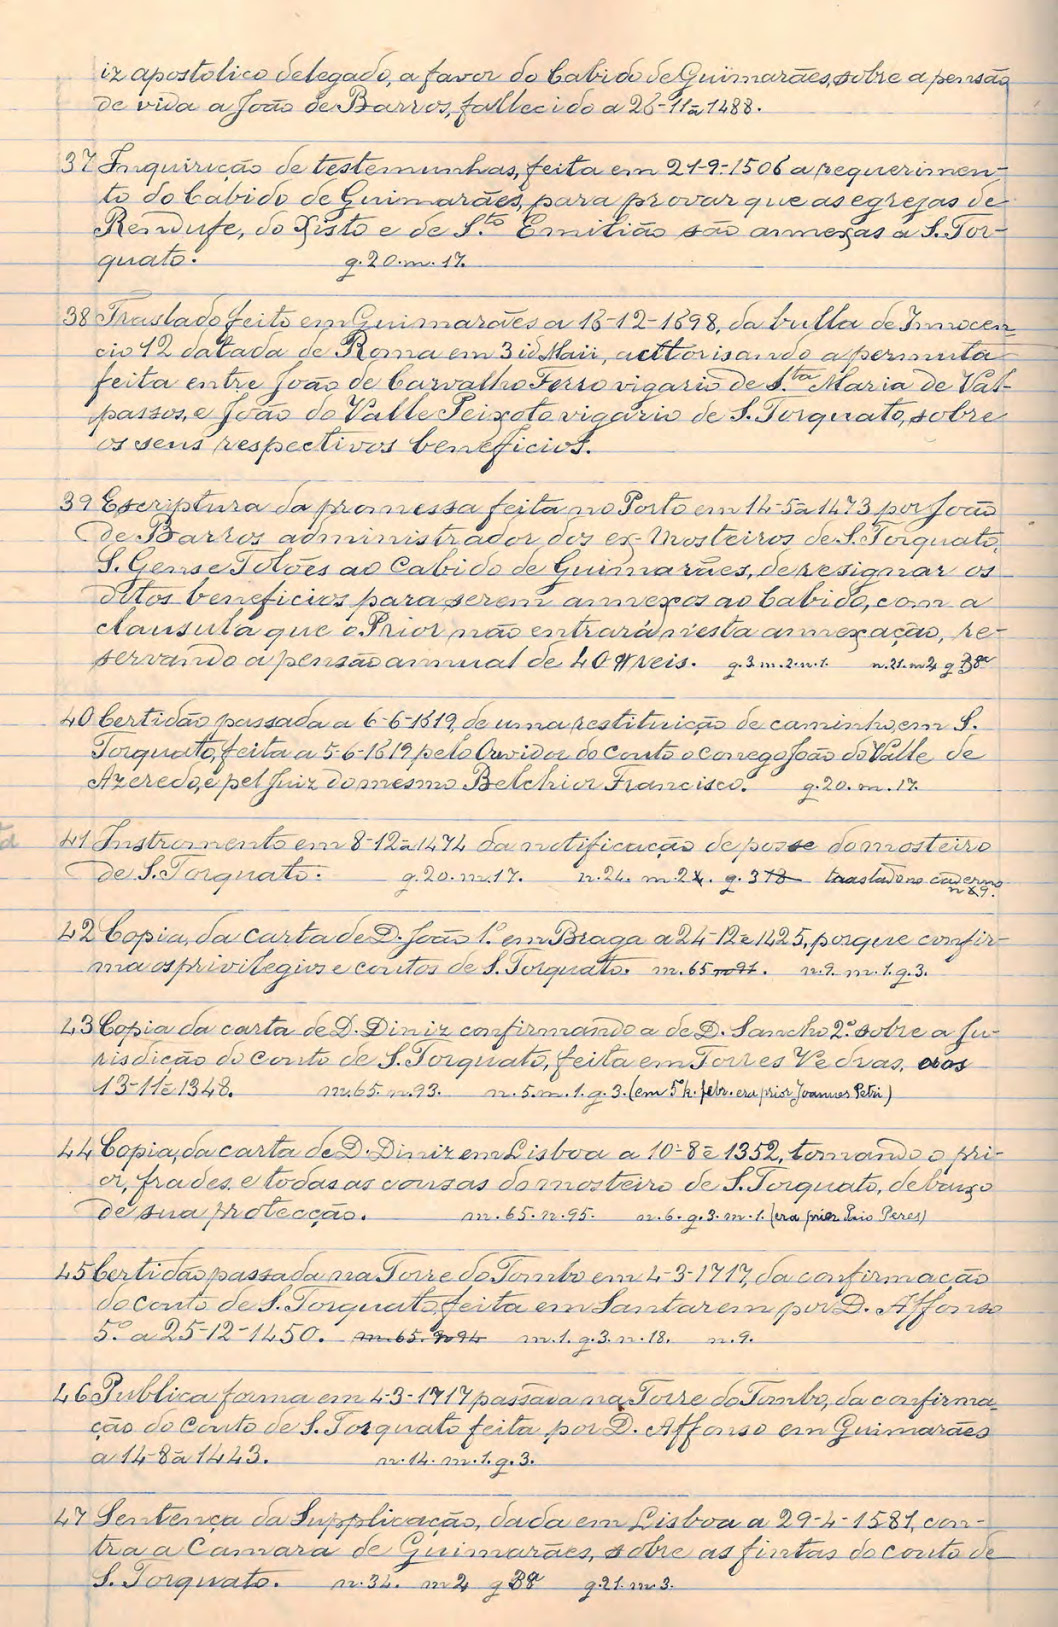 iz apostolico delegado, a favor do Cabido de Guimarães, sobre a pensão
de vida a João de Barros, fallecido a 26-11ª-1488.
37 Inquirição de testemunhas, feita em 21-9-1506 a requerimen-
to do Cabido de Guimarães, para provar que as egrejas de
Rendufe, do Xisto e de S.to Emitião são annexas a S. Tor-
quato. g. 20. m. 17.
38 Traslado feito em Guimarães a 16-12-1698, da bulla de Innocen-
cio 12 datada de Roma em 3 id Maii, auttorisando a permuta
feita entre João de Carvalho Ferro vigario de S.ta Maria de Val-
passos, e João do Valle Peixoto vigario de S. Torquato, sobre
os seus respectivos beneficios.
39 Escriptura da promessa feita no Porto em 14-5ª-1473 por João
de Barros administrador dos ex-Mosteiros de S. Torquato,
S. Gens e Tolões ao Cabido de Guimarães, de resignar os
ditos beneficios para serem annexos ao Cabido, com a
clausula que o Prior não entrará n'esta annexação, re-
servando a pensão annual de 40 $ reis. g. 3 m. 2. n. 1. n. 21. m 2 g 3ª
40 Certidão passada a 6-6-1619, de uma restituição de caminho, em S.
Torquato, feita a 5-6-1619 pelo Ouvidor do couto o conego João do Valle de
Azeredo, e pel Juiz do mesmo Belchior Francisco. g. 20. m. 17.
41 Instromento em 8-12ª-1474 da notificação de posse do mosteiro
de S. Torquato. g. 20. m. 17. n. 24. m. 2. g. 3 traslado no caderno
n 9.
42 Copia, da carta de D. João 1.º em Braga a 24-12ᵉ-1425, porque confir-
ma os privilegios e coutos de S. Torquato. m. 65 n. 91. n. 9. m. 1. g. 3.
43 Copia da carta de D. Diniz confirmando a de D. Sancho 2.º sobre a Ju-
risdição do couto de S. Torquato, feita em Torres Vedras, aos
13-11ᵉ-1348. m. 65. n. 93. n. 5. m. 1. g. 3. (em 5 k. febr. era prior Joannes Petri)
44 Copia, da carta de D. Diniz em Lisboa a 10-8ᵉ-1352, tomando o pri-
or, frades, e todas as cousas do mosteiro de S. Torquato, debaixo
de sua protecção. m. 65. n. 95. n. 6. g. 3. m. 1. (era prior Paio Peres)
45 Certidão passada na Torre do Tombo em 4-3-1717, da confirmação
do couto de S. Torquato, feita em Santarem por D. Affonso
5.º a 25-12-1450. m. 65. n. 94 m. 1. g. 3. n. 18. n. 9.
46 Publica forma em 4-3-1717 passada na Torre do Tombo, da confirma-
ção do couto de S. Torquato feita por D. Affonso em Guimarães
a 14-8ª-1443. n. 14. m. 1. g. 3.
47 Sentença da Supplicação, dada em Lisboa a 29-4-1581, con-
tra a Camara de Guimarães, sobre as fintas do couto de
S. Torquato. n. 34. m 2 g 3ª g. 21. m. 3.